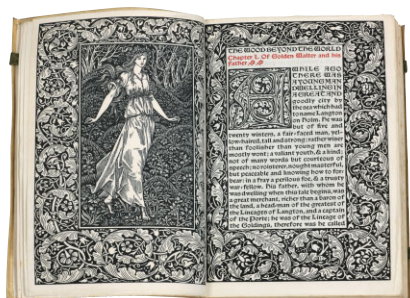 THE WOOD BEYOND THE WORLD
Chapter I. Of Golden Walter and his
father
AWHILE AGO
THERE WAS
A YOUNG MAN
DWELLING IN
A GREAT AND
goodly city by
the sea which had
to name Langton
on Holm. He was
but of five and
twenty winters, a fair-faced man, yel-
low-haired, tall and strong; rather wiser
than foolisher than young men are
mostly wont; a valiant youth, & a kind;
not of many words but courteous of
speech; no roisterer, nought masterful,
but peaceable and knowing how to for-
bear: in a fray a perilous foe, & a trusty
war-fellow. His father, with whom he
was dwelling when this tale begins, was
a great merchant, richer than a baron of
the land, a head-man of the greatest of
the Lineages of Langton, and a captain
of the Porte; he was of the Lineage of
the Goldings, therefore was he called